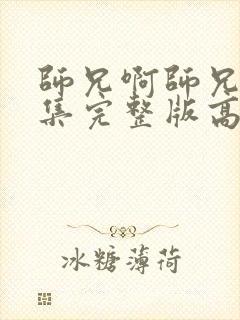 師兄啊師兄
集完整版高
冰糖薄荷